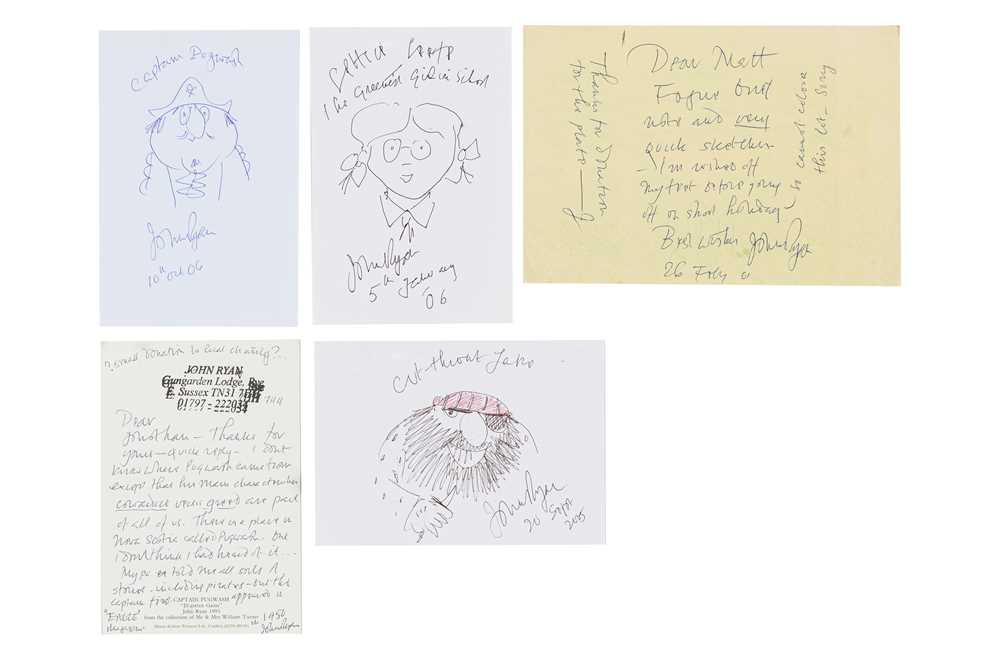 Captain Pugwash
John Ryan
10th Oct 06
The Greenest Girl in School
John Ryan
5th
06
Dear Matt
note and very
quick sketches
I'm rushed off
my feet before going
off on short holiday
Best wishes John Ryan
26
so cannot colour
this lot - Sorry
Thanks for donation
Cut throat Jake
John Ryan
20 Sept
2005
? small donation to local charity? ..
JOHN RYAN
Gungarden Lodge, Rye
E. Sussex TN31 7HH
01797 - 222034
7HH
Dear
Jonathan - Thanks for
yours - quick reply - I don't
know where Pugwash came from
except that his main characteristics
cowardice and greed are part
of all of us. There is a place in
Nova Scotia called Pugwash. But
I don't think I had heard of it...
My pa told me all sorts of
stories - including pirates - but the
captain first appeared in
CAPTAIN PUGWASH
John Ryan 1991
from the collection of Mr & Mrs William Turner
"EAGLE"
Magazine
in 1950
John Ryan